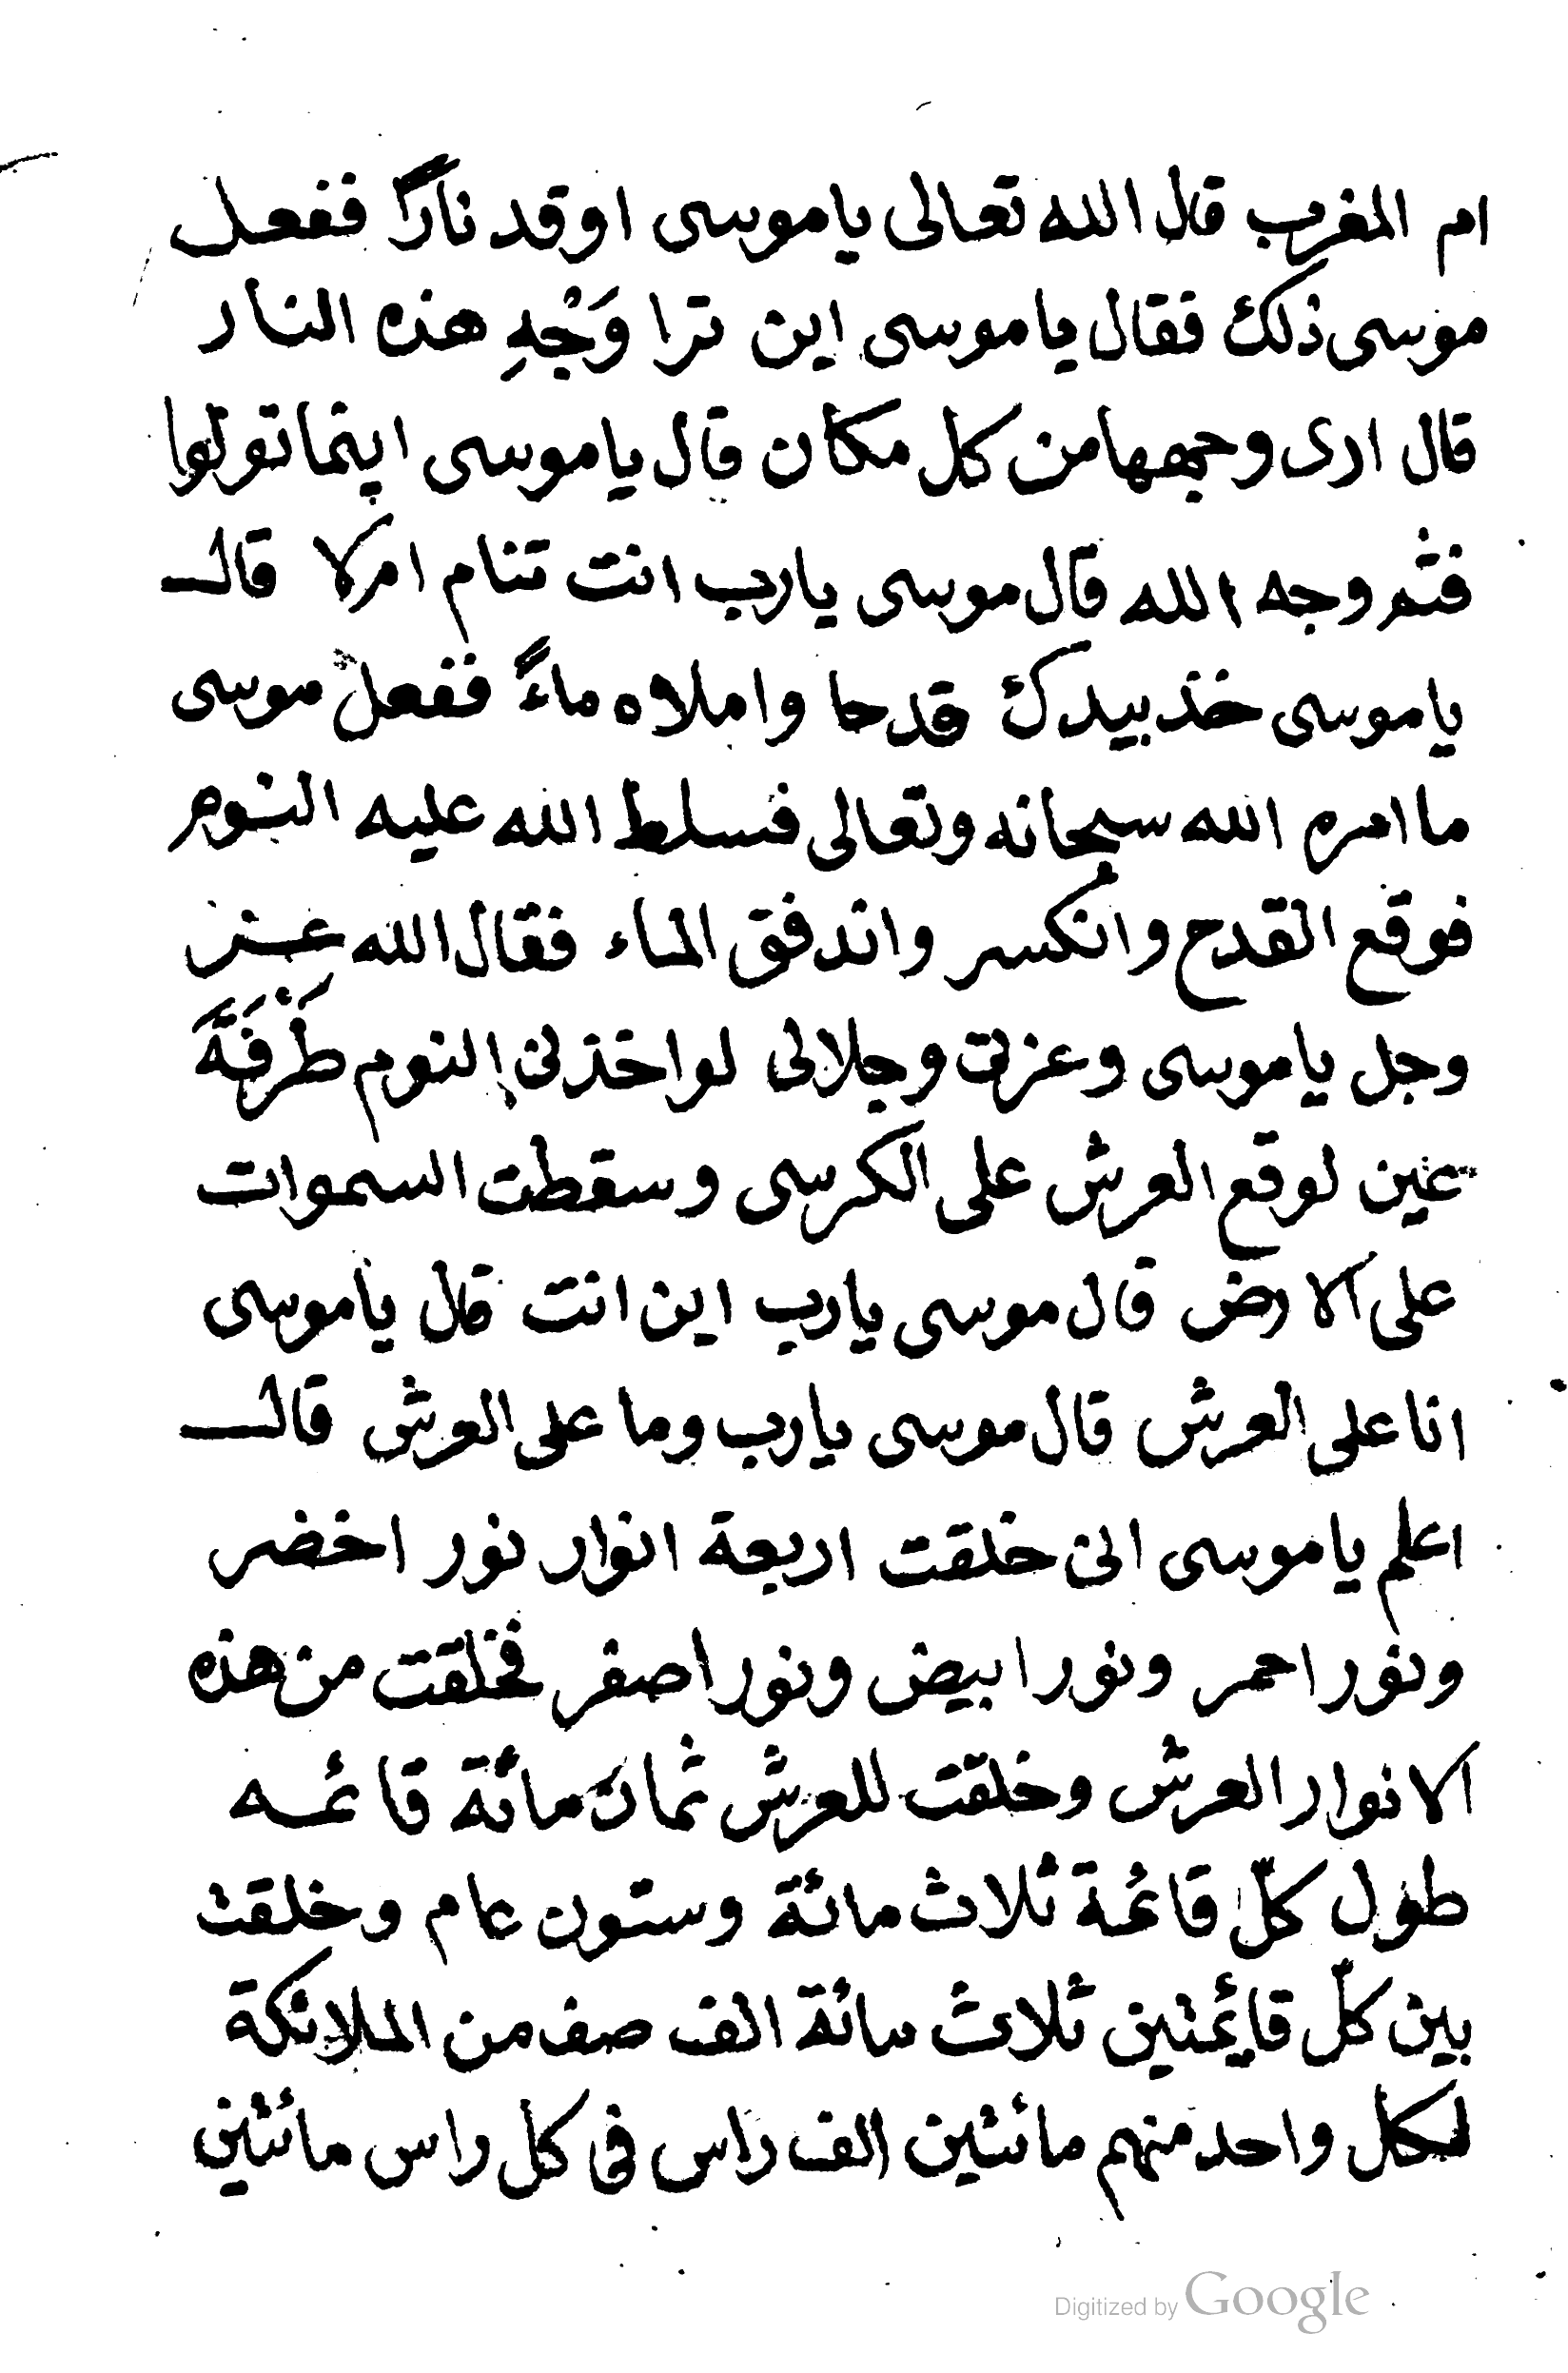 ام المغرب قال الله تعالى ياموسى اوقد نارًا ففعل
موسى ذلك فقال ياموسى اين ترا وَجْهِ هذه النار
قال ارى وجهها من كل مكان قال ياموسى اينما تولوا
فثم وجه الله قال موسى يارب انت تنام ام لا قال
ياموسى خذ بيدك قدحا واملاه ماءً ففعل موسى
ما امره الله سبحانه وتعالى فسلط الله عليه النوم
فوقع القدح وانكسر واندفق الماء فقال الله عز
وجل ياموسى وعزتى وجلالى لو اخذنى النوم طَرْفَةَ
عين لوقع العرش على الكرسى وسقطت السموات
على الارض قال موسى يارب اين انت قال ياموسى
انا على العرش قال موسى يارب وما على العرش قال
اعلم ياموسى انى خلقت اربعة انوار نور اخضر
ونور احمر ونور ابيض ونور اصفر فخلقت من هذه
الانوار العرش وخلقت للعرش ثمان مائة قائمه
طول كلّ قائمة ثلاث مائة وستون عام وخلقت
بين كلّ قايمتين ثلاث مائة الف صف من الملائكة
لكل واحد منهم مائتين الف راس فى كل راس مائتين
Digitized by Google